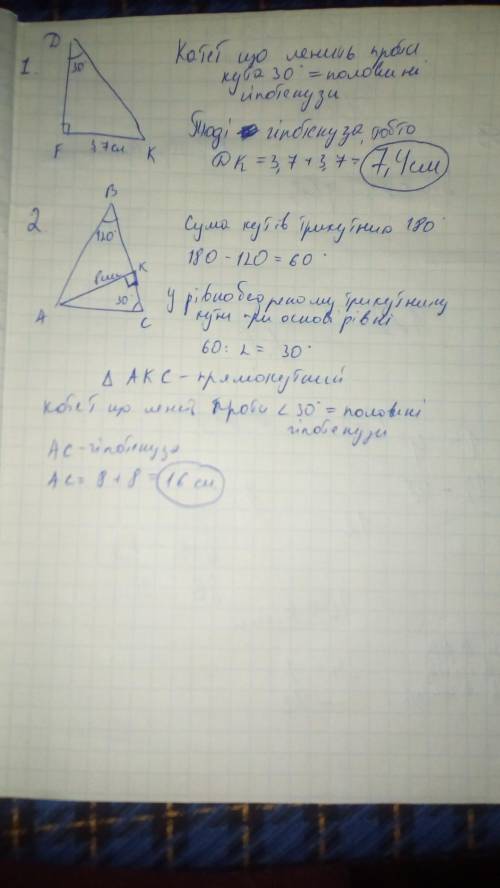 1.
D
30°
F
3,7 см
K
Катет що лежить проти
кута 30° = половині
гіпотенузи
Тоді гіпотенуза, тобто
DK = 3,7 + 3,7 = 7,4 см
2
B
120°
8 см
K
30°
A
C
Сума кутів трикутника 180°
180 - 120 = 60°
У рівнобедреному трикутнику
кути при основі рівні
60 : 2 = 30°
Δ AKC - прямокутний
Катет що лежить проти < 30° = половині
гіпотенузи
AC - гіпотенуза
AC = 8 + 8 = 16 см